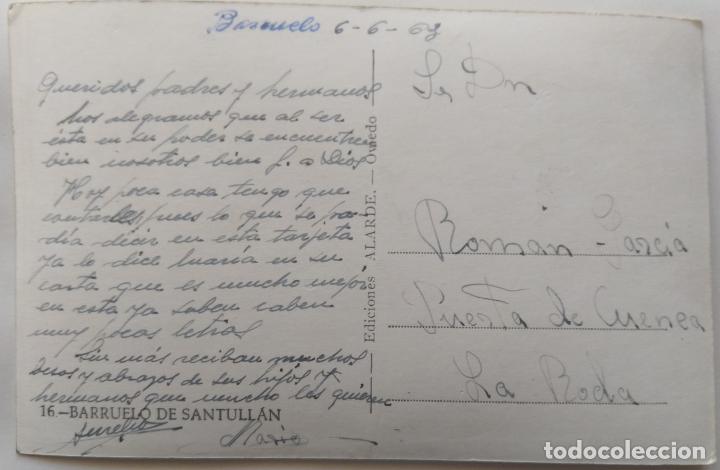 Barruelo 6-6-63
Queridos padres y hermanos
nos alegramos que al ser
ésta en su poder se encuentren
bien nosotros bien g. a Dios
Hoy poca cosa tengo que
contarles pues lo que se po-
día decir en esta tarjeta
ya lo dice María en su
carta que es mucho mejor
en esta ya saben caben
muy pocas letras
Sin más reciban muchos
besos y abrazos de sus hijos y
hermanos que mucho les quieren
16.-BARRUELO DE SANTULLÁN
Aurelio
María
Ediciones ALARDE. - Oviedo
Sr Dn
Román García
Puerta de Cuenca
La Roda
todocoleccion.net